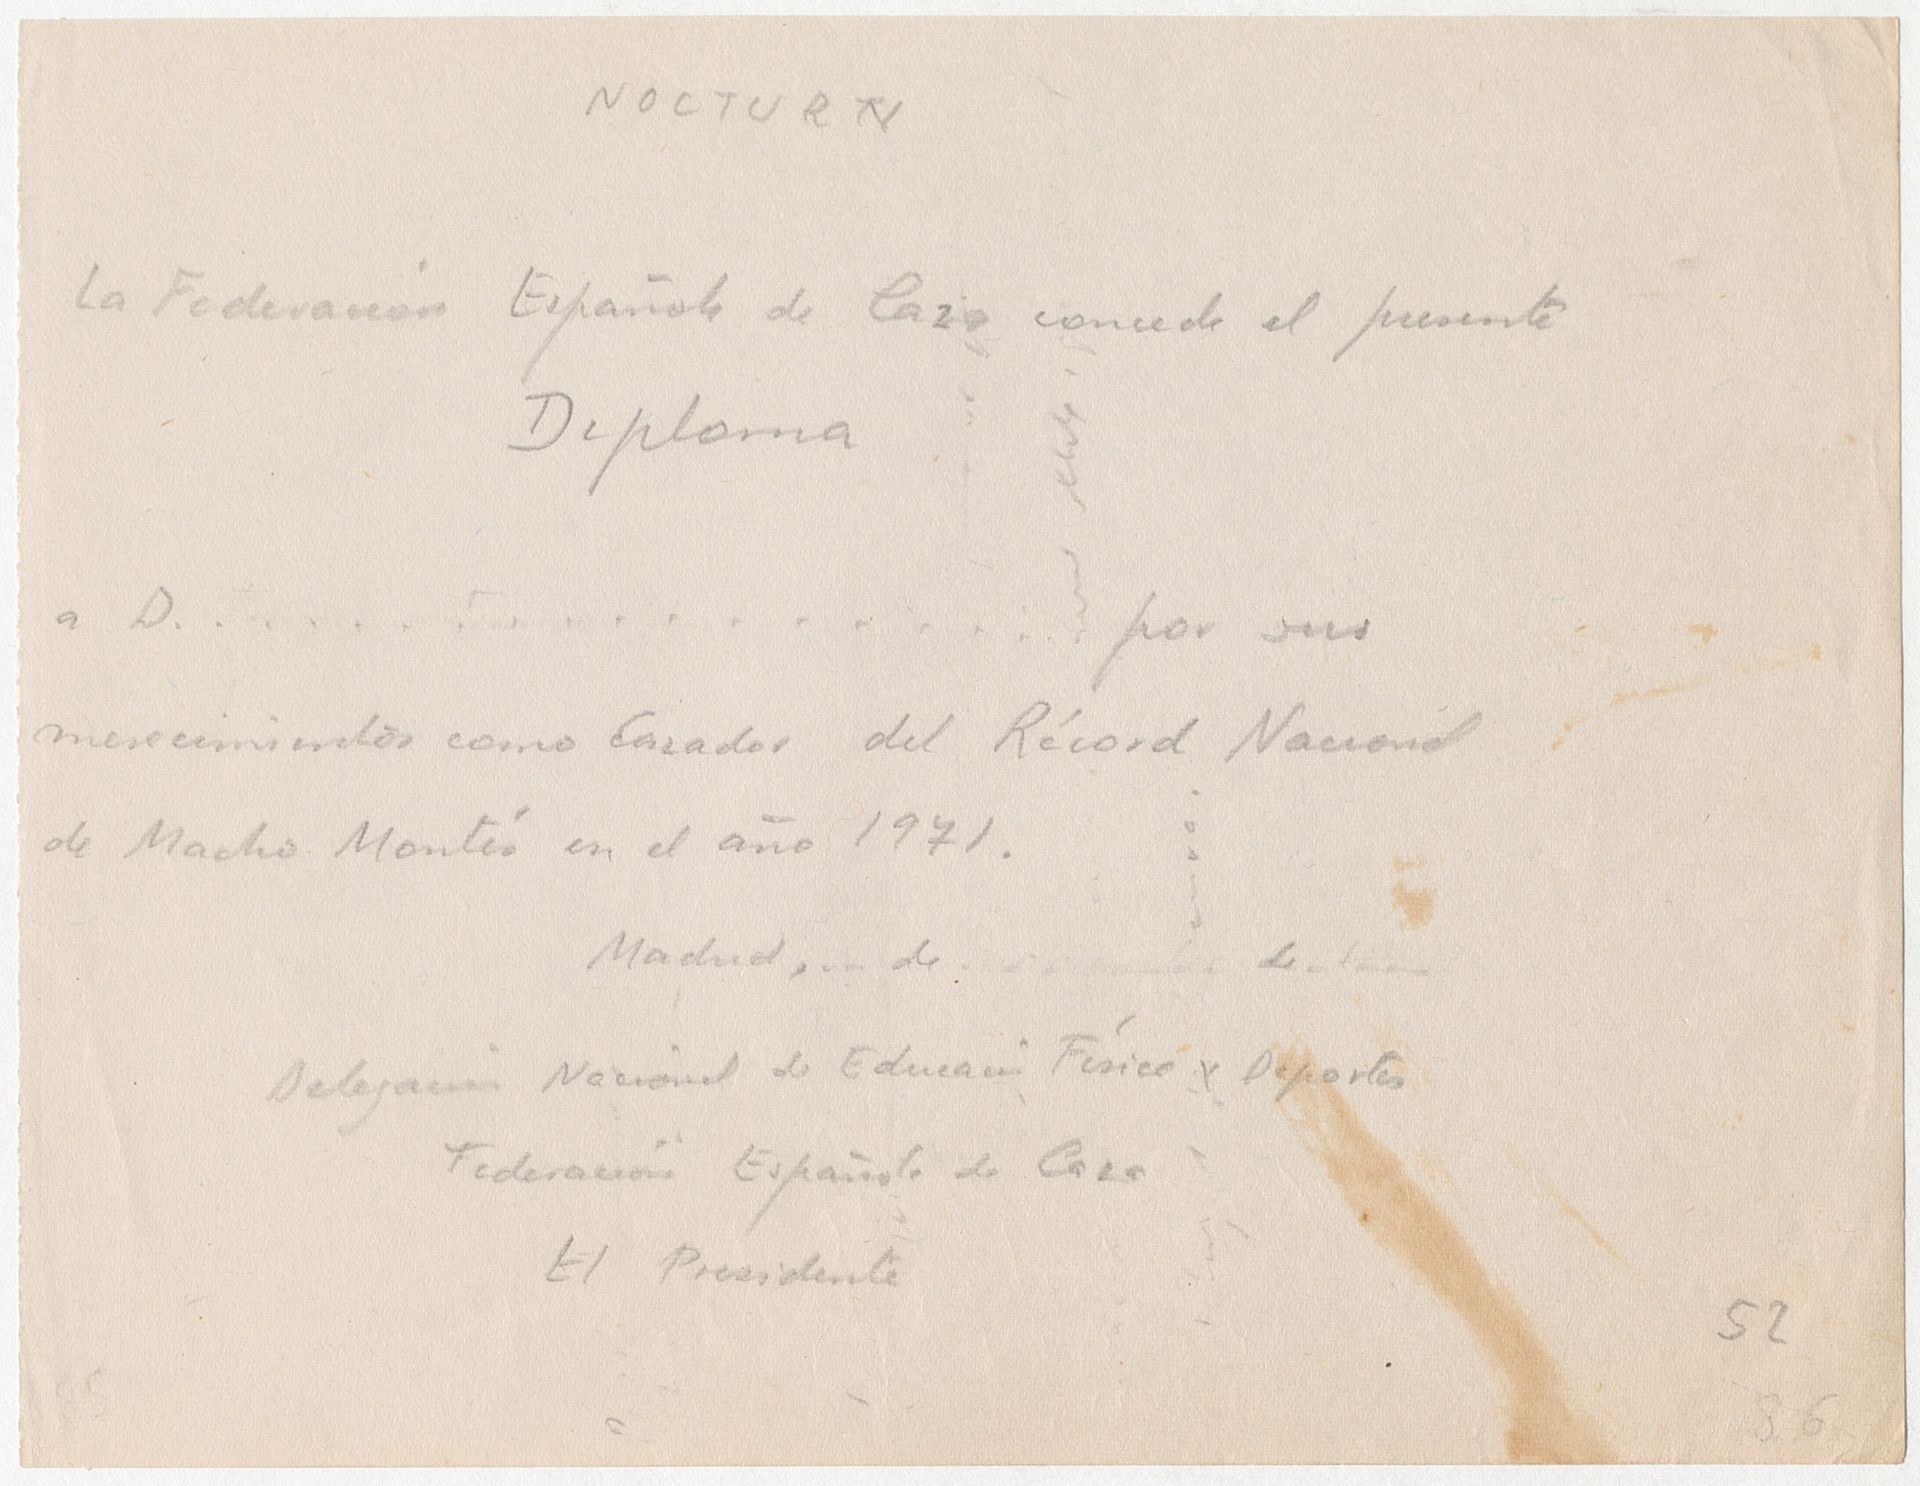 NOCTURN
La Federación Española de Caza concede el presente
Diploma
a D. . . . . . . . . . . . . . . . . por sus
merecimientos como Cazador del Récord Nacional
de Macho Montés en el año 1971.
Madrid, ... de ............ de ........
Delegación Nacional de Educación Física y Deportes
Federación Española de Caza
El Presidente
52
86